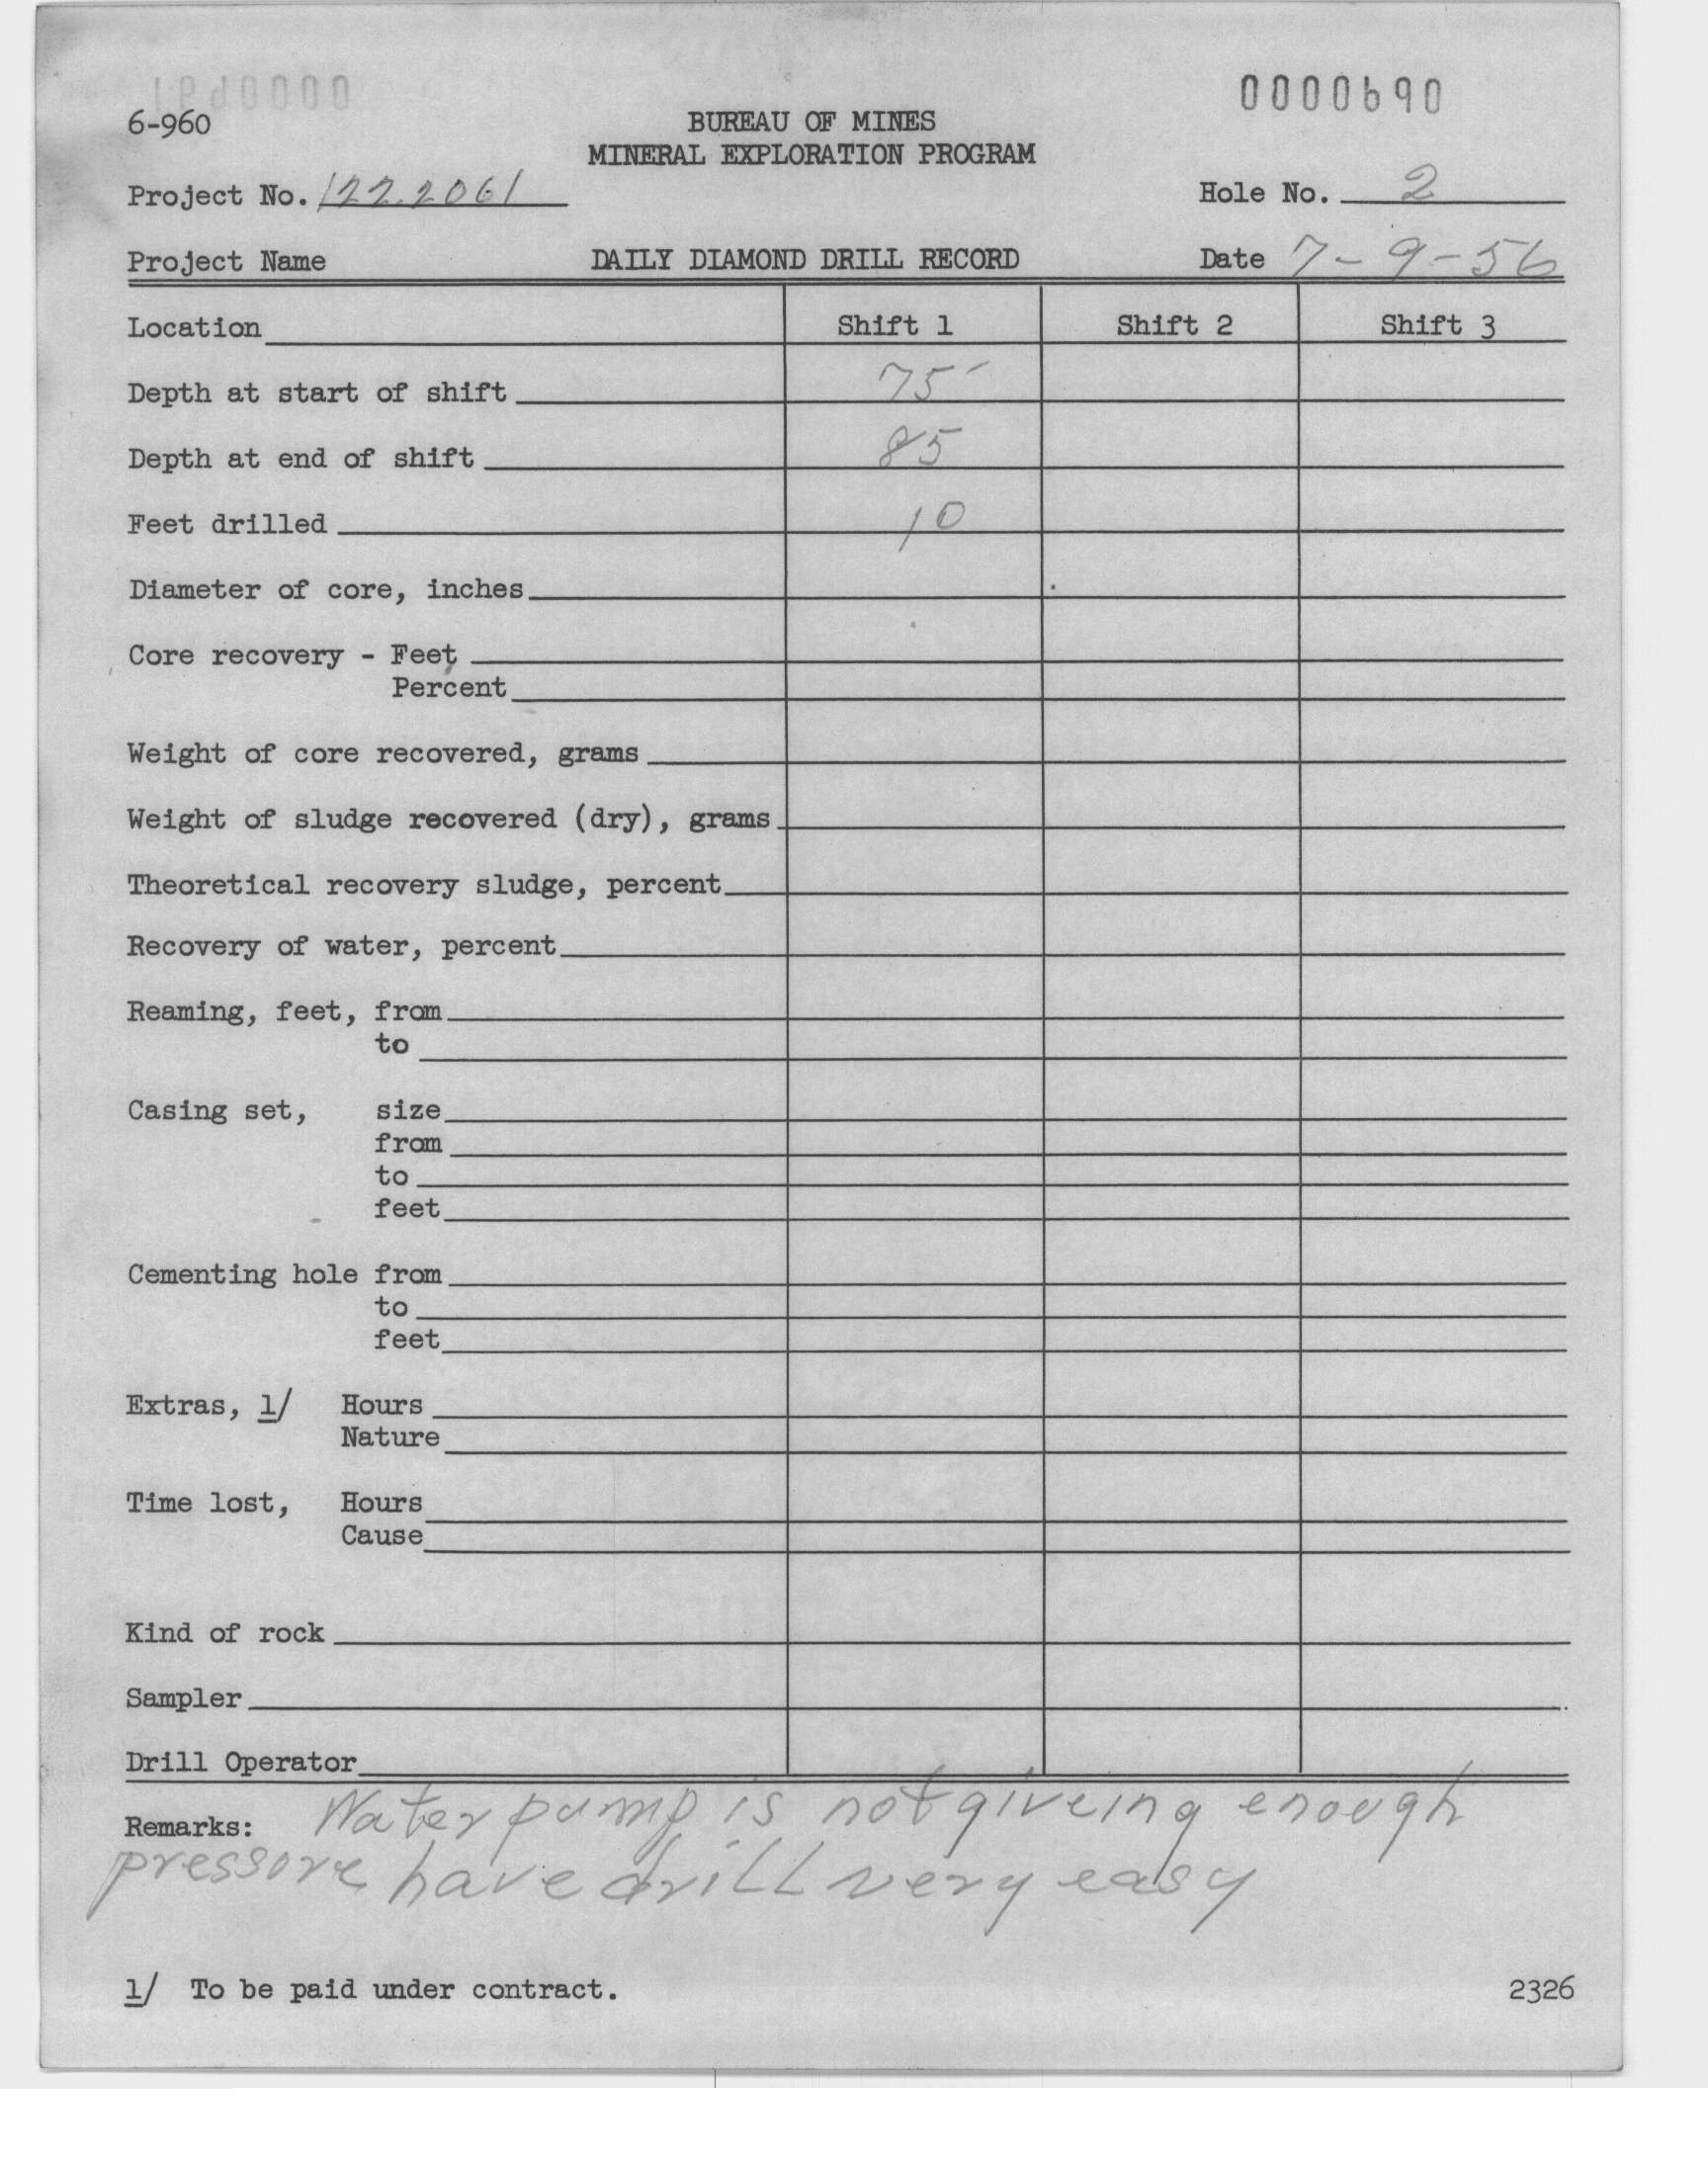 0000690
6-960
BUREAU OF MINES
MINERAL EXPLORATION PROGRAM
Project No. 122.2061
Hole No. 2
Project Name
DAILY DIAMOND DRILL RECORD
Date 7-9-56
Location Shift 1 Shift 2 Shift 3
Depth at start of shift 75'
Depth at end of shift 85
Feet drilled 10
Diameter of core, inches
Core recovery - Feet
Percent
Weight of core recovered, grams
Weight of sludge recovered (dry), grams
Theoretical recovery sludge, percent
Recovery of water, percent
Reaming, feet, from
to
Casing set, size
from
to
feet
Cementing hole from
to
feet
Extras, 1/ Hours
Nature
Time lost, Hours
Cause
Kind of rock
Sampler
Drill Operator
Remarks: Water pump is not giveing enough
pressore have drill very easy
1/ To be paid under contract.
2326